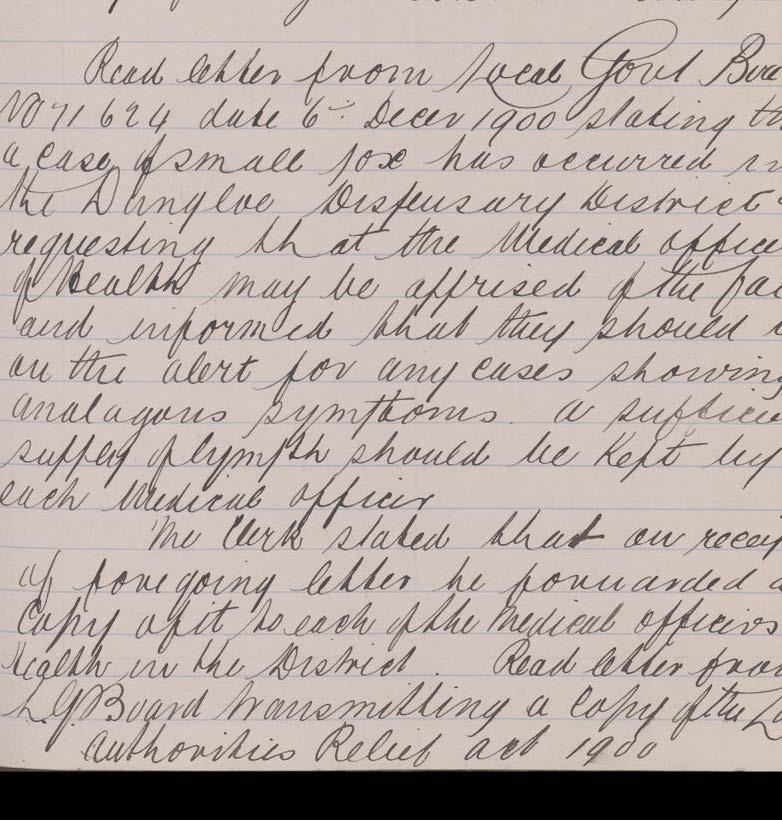 Read letter from Local Govt Boa
No 71624 date 6th Decer 1900 stating th
a case of small pox has occurred in
the Dungloe Dispensary District
requesting that the Medical office
of Health may be apprised of the fac
and informed that they should
on the alert for any cases showing
analagous symptoms. a sufficie
supply of lymph should be kept by
each Medical officer
The Clerk stated that on receip
of foregoing letter he forwarded a
Copy of it to each of the Medical officers
Health in the District. Read letter from
L.G. Board transmitting a Copy of the L
authorities Relief act 1900